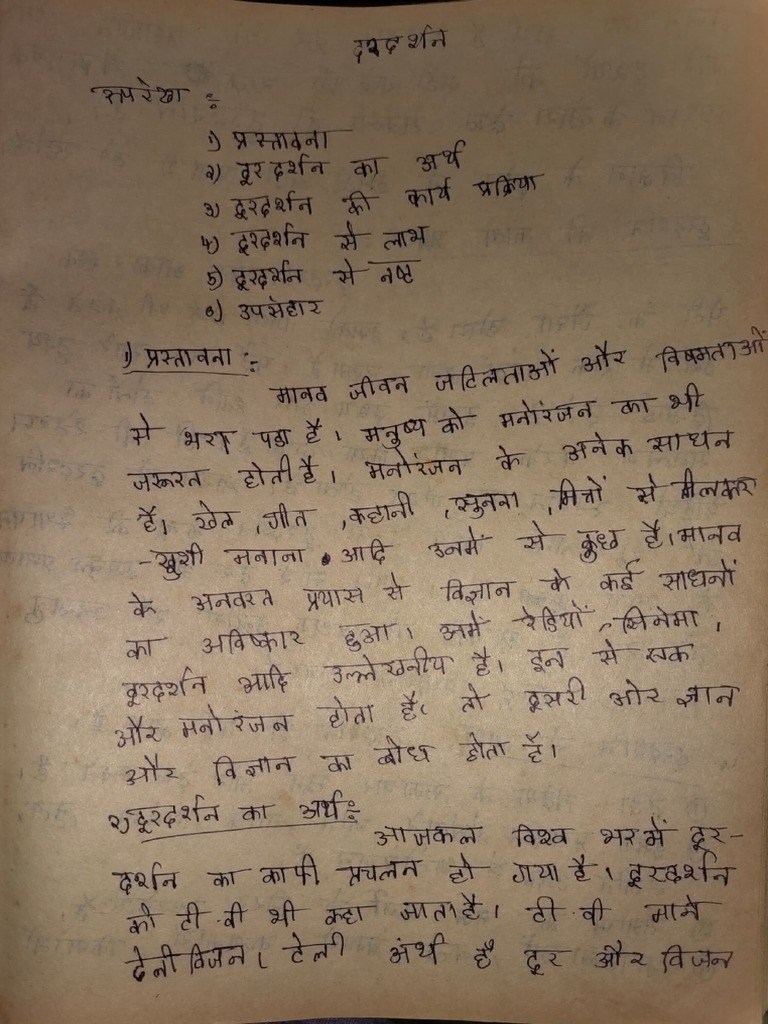 दूरदर्शन
रूपरेखा :
1) प्रस्तावना
२) दूरदर्शन का अर्थ
३) दूरदर्शन की कार्य प्रक्रिया
4) दूरदर्शन से लाभ
5) दूरदर्शन से नष्ट
6) उपसंहार
1) प्रस्तावना :-
मानव जीवन जटिलताओं और विषमताओं
से भरा पडा है। मनुष्य को मनोरंजन का भी
जरूरत होती है। मनोरंजन के अनेक साधन
है। खेल, गीत, कहानी, सुनना, मित्रों से मिलकर
खुशी मनाना आदि उनमें से कुछ है। मानव
के अनवरत प्रयास से विज्ञान के कई साधनों
का अविष्कार हुआ। अमें रेडियों, सिनेमा,
दूरदर्शन आदि उल्लेखनीय है। इन से एक
और मनोरंजन होता है। तो दूसरी ओर ज्ञान
और विज्ञान का बोध होता है।
२) दूरदर्शन का अर्थ :-
आजकल विश्व भर में दूर-
दर्शन का काफी प्रचलन हो गया है। दूरदर्शन
को टी.वी भी कहा जाता है। टी वी माने
टेलीविजन। टेली अंर्थ है दूर और विजन